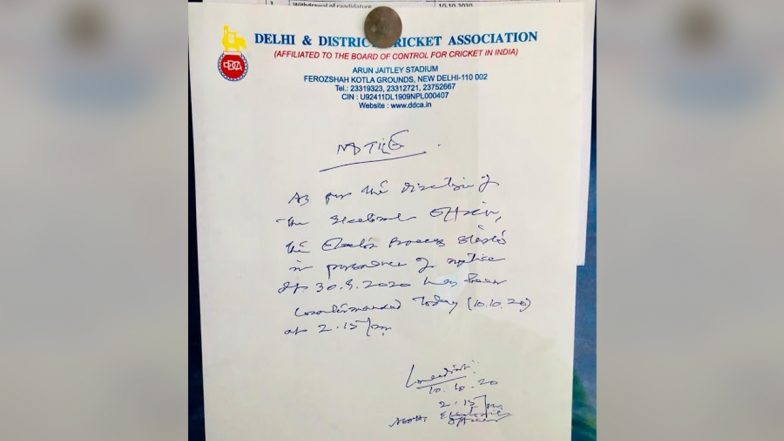 Withdrawal of candidature 10-10-2020
DELHI & DISTRICT CRICKET ASSOCIATION
(AFFILIATED TO THE BOARD OF CONTROL FOR CRICKET IN INDIA)
ARUN JAITLEY STADIUM
FEROZSHAH KOTLA GROUNDS, NEW DELHI-110 002
Tel.: 23319323, 23312721, 23752667
CIN : U92411DL1909NPL000407
Website : www.ddca.in
DDCA
NOTICE
As per the direction of
the Electoral Officer,
the Election Process started
in pursuance of notice
dt 30.9.2020 has been
countermanded today (10.10.20)
at 2.15 pm
10.10.20
2.15 pm
Electoral
Officer